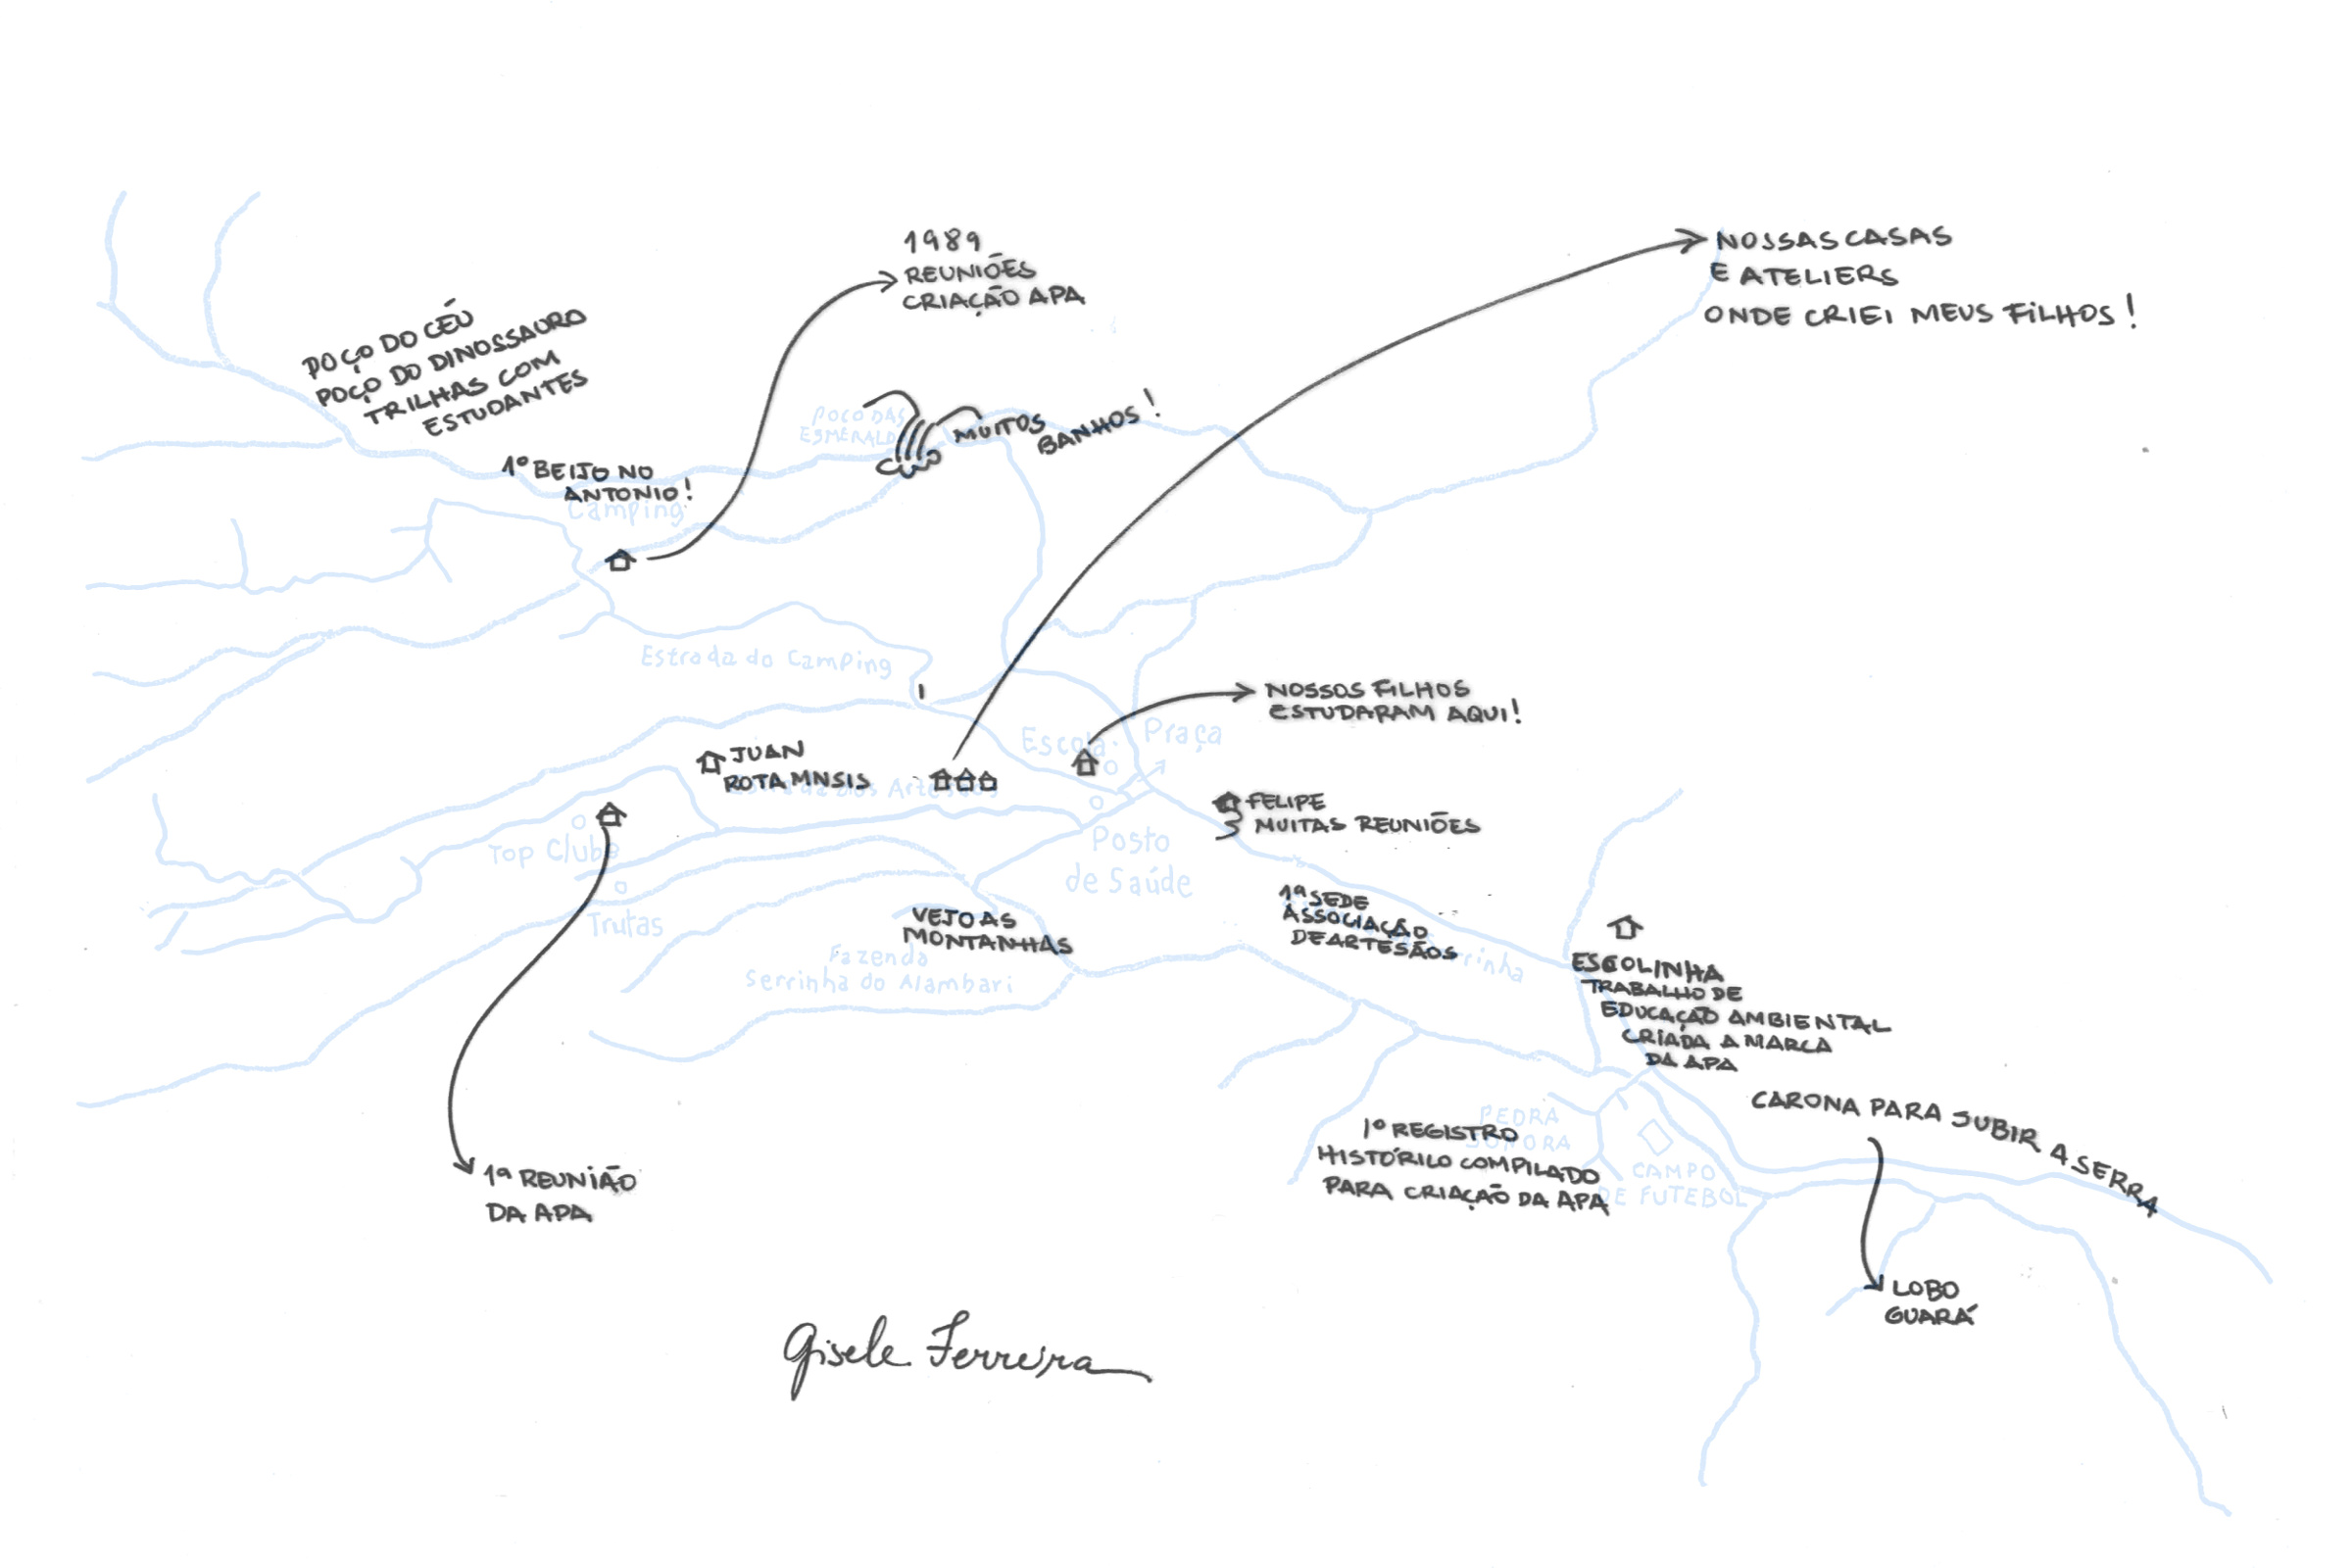 1989
REUNIÕES
CRIAÇÃO APA
NOSSAS CASAS
E ATELIERS
ONDE CRIEI MEUS FILHOS!
POÇO DO CÉU
POÇO DO DINOSSAURO
TRILHAS COM
ESTUDANTES
POÇO DAS
MUITOS
BANHOS!
1º BEIJO NO
ANTONIO!
Camping
Estrada do Camping
NOSSOS FILHOS
ESTUDARAM AQUI!
Escola
Praça
JUAN
ROTA MNSIS
FELIPE
MUITAS REUNIÕES
Top Clube
Posto
de Saúde
Trutas
VEJO AS
MONTANHAS
Fazenda
Serrinha do Alambari
1ª SEDE
ASSOCIAÇÃO
DE ARTESÃOS
ESCOLINHA
TRABALHO DE
EDUCAÇÃO AMBIENTAL
CRIADA A MARCA
DA APA
CARONA PARA SUBIR A SERRA
PEDRA
SONORA
1º REGISTRO
HISTÓRICO COMPILADO
PARA CRIAÇÃO DA APA
CAMPO
DE FUTEBOL
1ª REUNIÃO
DA APA
LOBO
GUARÁ
Gisele Ferreira